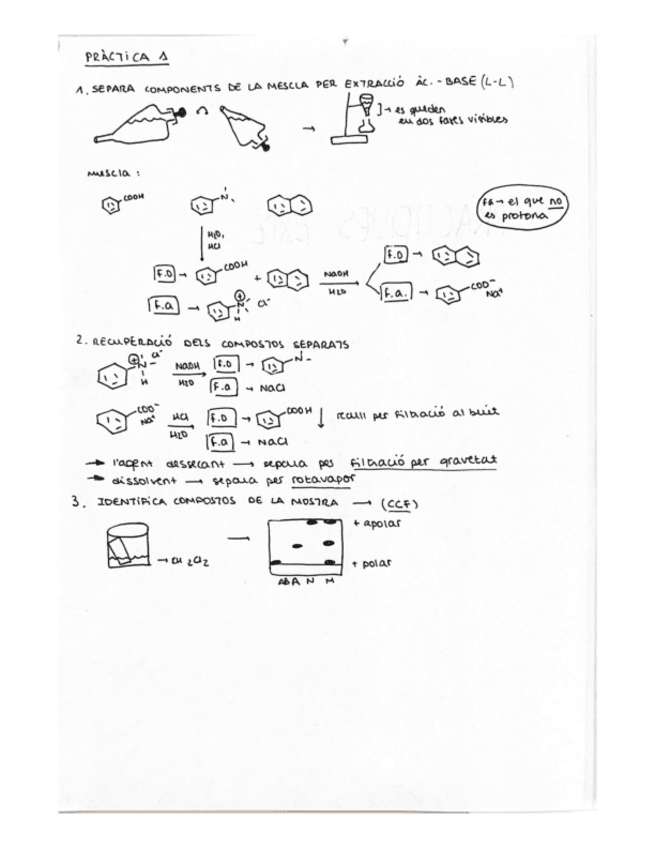 PRÀCTICA 1
1. SEPARA COMPONENTS DE LA MESCLA PER EXTRACCIÓ ÀC.-BASE (L-L)
→ es queden
en dos fases visibles
Mescla :
COOH
N
FA → el que no
es protona
H2O,
HCl
F.O → COOH + NaOH
H2O
F.O →
F.a. → COO⁻
Na⁺
F.a → N
H
Cl⁻
2. RECUPERACIÓ DELS COMPOSTOS SEPARATS
Cl⁻
N
H
NaOH
H2O
F.O → N
F.a → NaCl
COO⁻
Na⁺
HCl
H2O
F.O → COOH ↓ recull per filtració al buit
F.a → NaCl
→ l'agent dessecant → separa per filtració per gravetat
→ dissolvent → separa per rotavapor
3. IDENTIFICA COMPOSTOS DE LA MOSTRA → (CCF)
→ CH2Cl2
→
+ apolar
+ polar
AB A N M